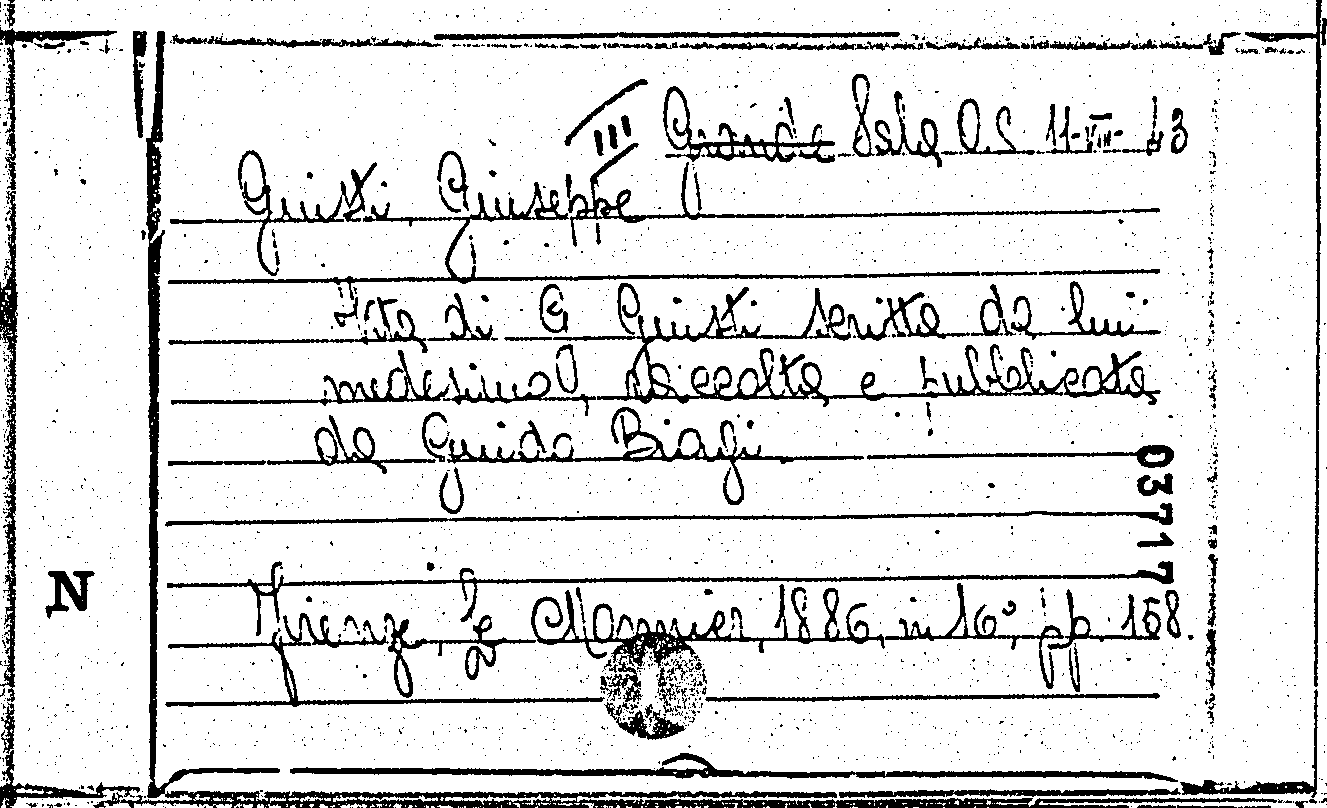 III Grande Sala O.S 11-VII-43
Giusti, Giuseppe
Vita di G Giusti scritta da lui
medesimo, raccolta e pubblicata
da Guido Biagi.
03717
N
Firenze, Le Monnier, 1886, in 16°, pp. 158.